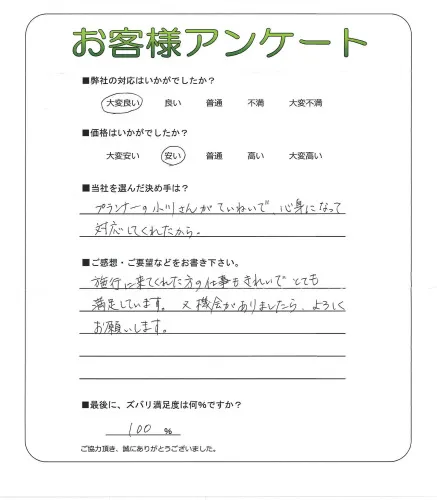 お客様アンケート
■弊社の対応はいかがでしたか?
大変良い 良い 普通 不満 大変不満
■価格はいかがでしたか?
大変安い 安い 普通 高い 大変高い
■当社を選んだ決め手は?
プランナーの小川さんがていねいで、心身になって
対応してくれたから。
■ご感想・ご要望などをお書き下さい。
施行に来てくれた方の仕事もきれいでとても
満足しています。又機会がありましたら、よろしく
お願いします。
■最後に、ズバリ満足度は何%ですか?
100 %
ご協力頂き、誠にありがとうございました。